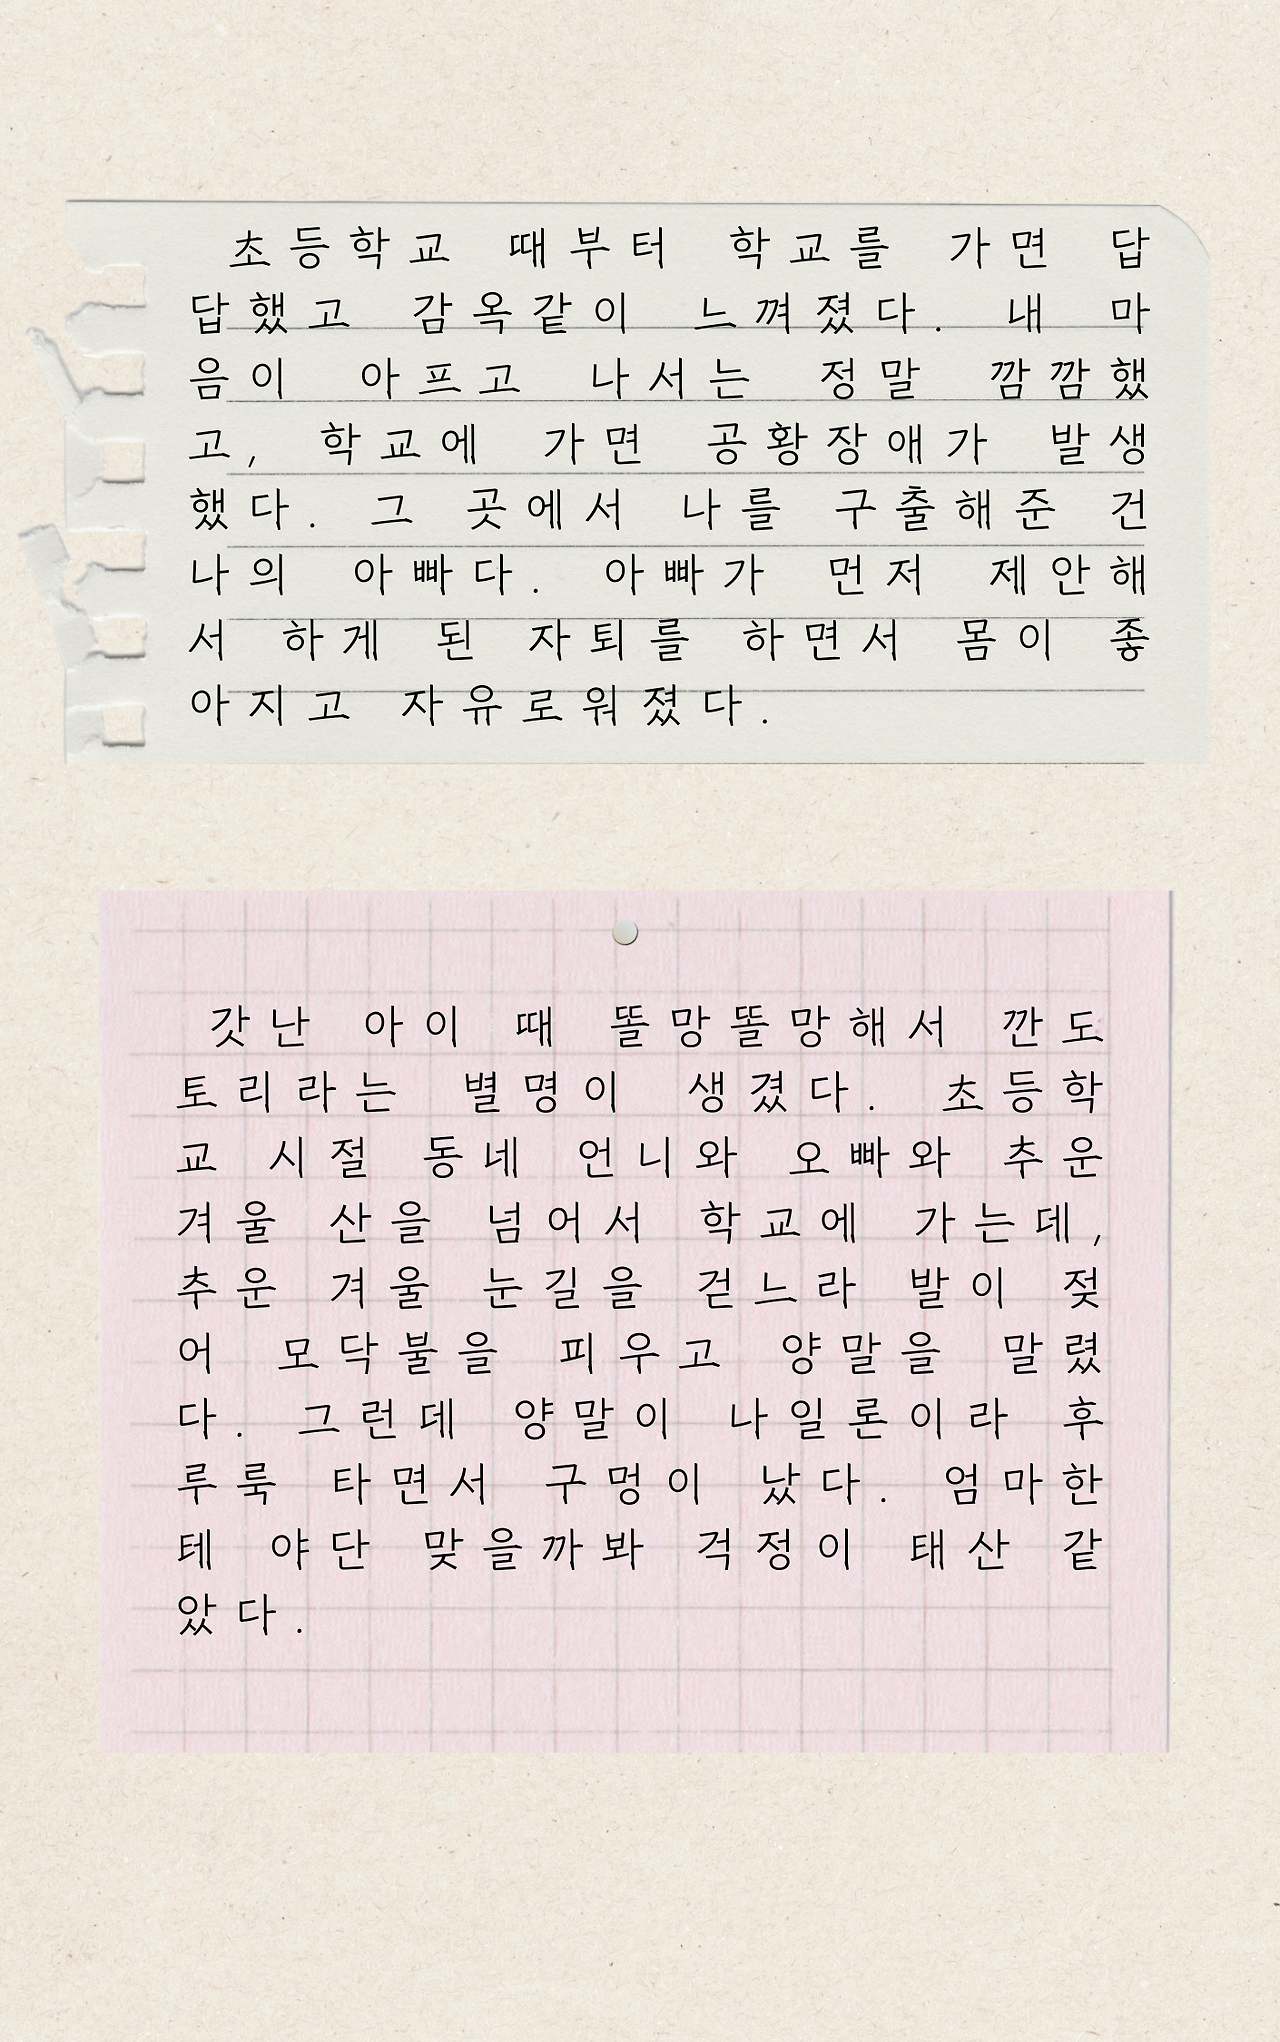 초등학교 때부터 학교를 가면 답
답했고 감옥같이 느껴졌다. 내 마
음이 아프고 나서는 정말 깜깜했
고, 학교에 가면 공황장애가 발생
했다. 그 곳에서 나를 구출해준 건
나의 아빠다. 아빠가 먼저 제안해
서 하게 된 자퇴를 하면서 몸이 좋
아지고 자유로워졌다.
갓난 아이 때 똘망똘망해서 깐도
토리라는 별명이 생겼다. 초등학
교 시절 동네 언니와 오빠와 추운
겨울 산을 넘어서 학교에 가는데,
추운 겨울 눈길을 걷느라 발이 젖
어 모닥불을 피우고 양말을 말렸
다. 그런데 양말이 나일론이라 후
루룩 타면서 구멍이 났다. 엄마한
테 야단 맞을까봐 걱정이 태산 같
았다.